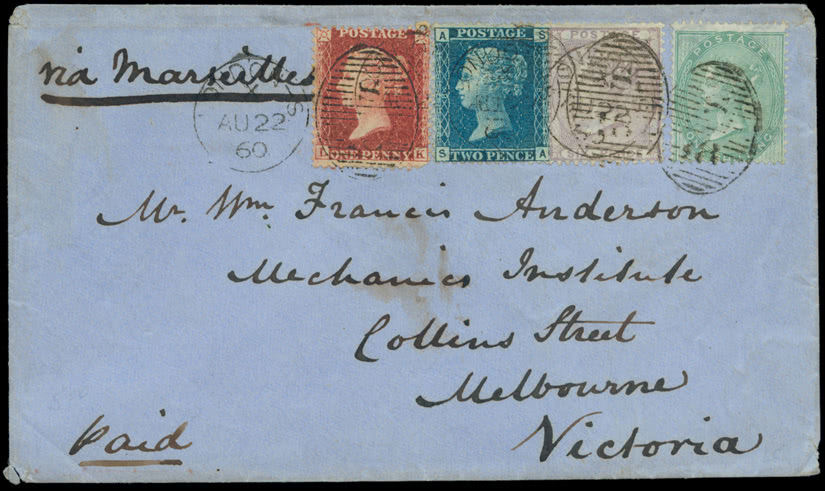 via Marseilles
AU 22
60
POSTAGE
ONE PENNY
K
POSTAGE
A S
TWO PENCE
S A
POSTAGE
POSTAGE
Mr. Wm. Francis Anderson
Mechanics Institute
Collins Street
Melbourne
Victoria
Paid